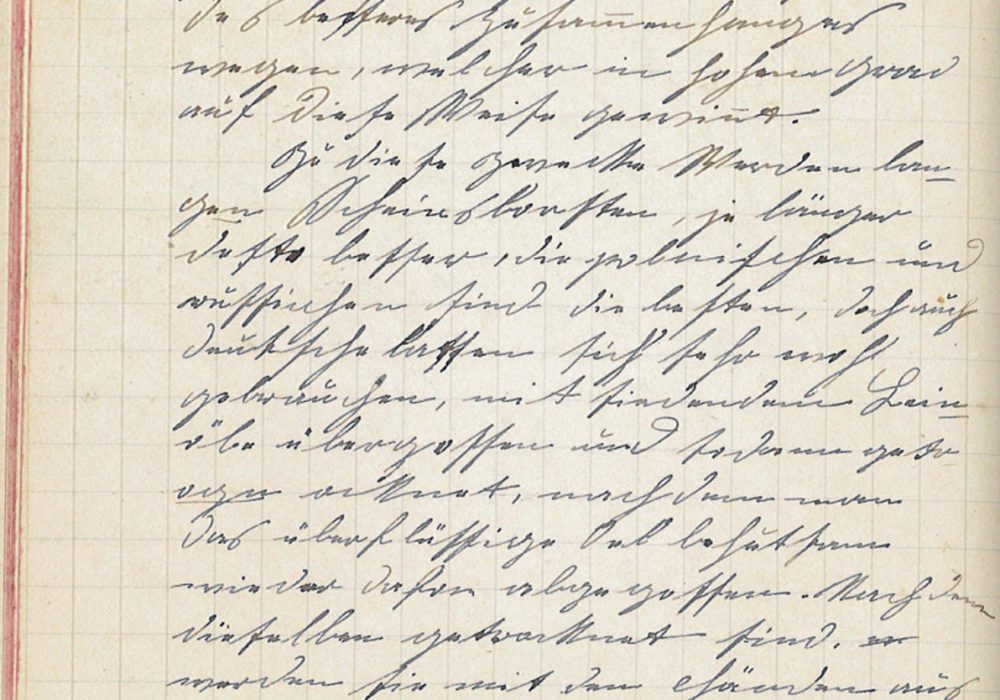 des besseren Zusammenhanges
wegen, welcher in hohem Grad
auf diese Weise gewinnt.
Zu diese Zwecke Werden lan-
gen Schweinsborsten, je länger
desto besser, die polnischen und
russischen sind die besten, doch auch
deutsche lassen sich sehr wohl
gebrauchen, mit siedendem Lein-
öle übergossen und sodann getr
ocknet, nachdem man
das überflüssige Oel behutsam
wieder dafon abgegossen. Nachdem
dieselben getrocknet sind.
werden sie mit den Händen aus